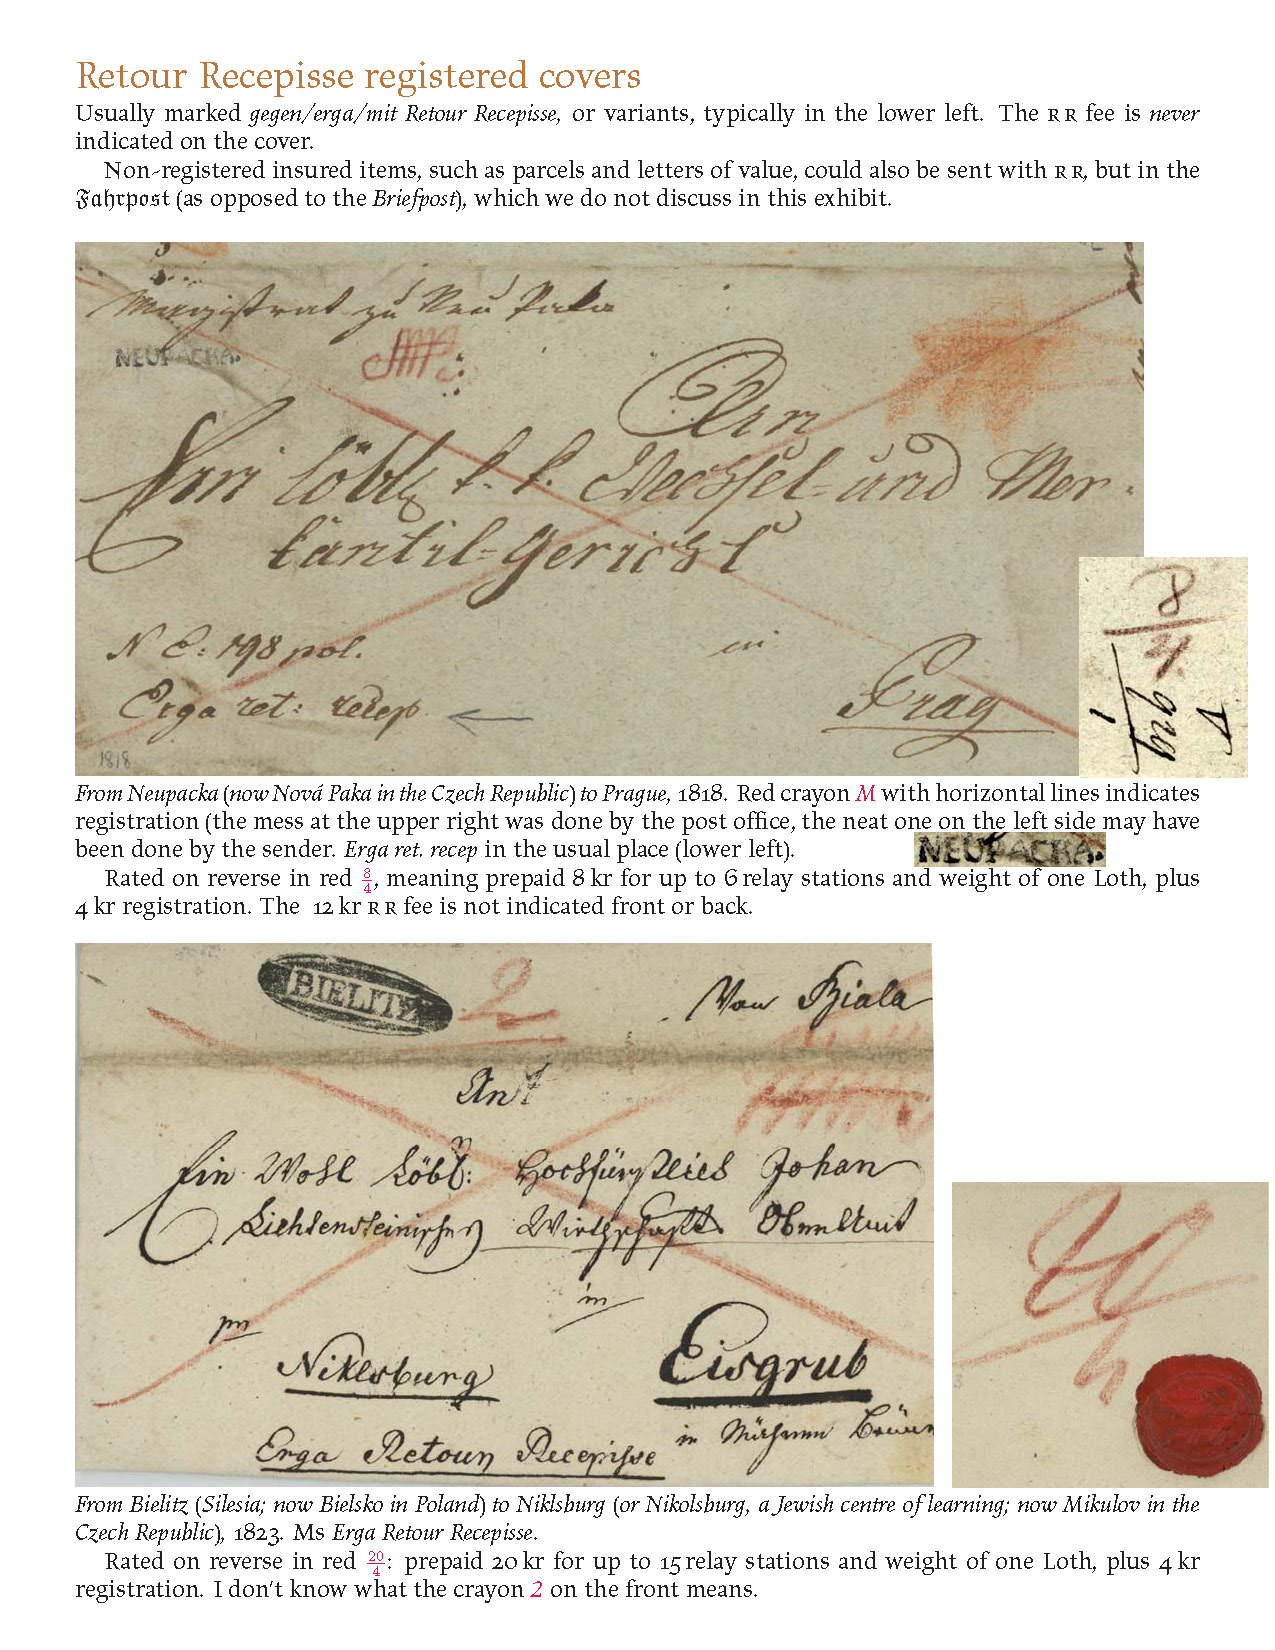 Retour Recepisse registered covers
Usually marked gegen/erga/mit Retour Recepisse, or variants, typically in the lower left. The RR fee is never
indicated on the cover.
Non-registered insured items, such as parcels and letters of value, could also be sent with RR, but in the
Fahrpost (as opposed to the Briefpost), which we do not discuss in this exhibit.
Magistrat zu Neu Paka
NEUPACKA.
An
Ein löbl k. k. Wechsel- und Mer-
kantil-Gericht
N E: 198 pol.
in
Erga ret: recep
Prag
1818
8
4
From Neupacka (now Nová Paka in the Czech Republic) to Prague, 1818. Red crayon M with horizontal lines indicates
registration (the mess at the upper right was done by the post office, the neat one on the left side may have
been done by the sender. Erga ret. recep in the usual place (lower left).
NEUPACKA.
Rated on reverse in red 8/4, meaning prepaid 8 kr for up to 6 relay stations and weight of one Loth, plus
4 kr registration. The 12 kr RR fee is not indicated front or back.
BIELITZ
2
Von Biala
An
Ein Wohl Löbl: Hochfürstlich Johan
Lichtensteinisches Wirthschafts Oberamt
in
Niklsburg
Eisgrub
Erga Retour Recepisse
in Mähren
20
4
From Bielitz (Silesia; now Bielsko in Poland) to Niklsburg (or Nikolsburg, a Jewish centre of learning; now Mikulov in the
Czech Republic), 1823. Ms Erga Retour Recepisse.
Rated on reverse in red 20/4: prepaid 20 kr for up to 15 relay stations and weight of one Loth, plus 4 kr
registration. I don't know what the crayon 2 on the front means.